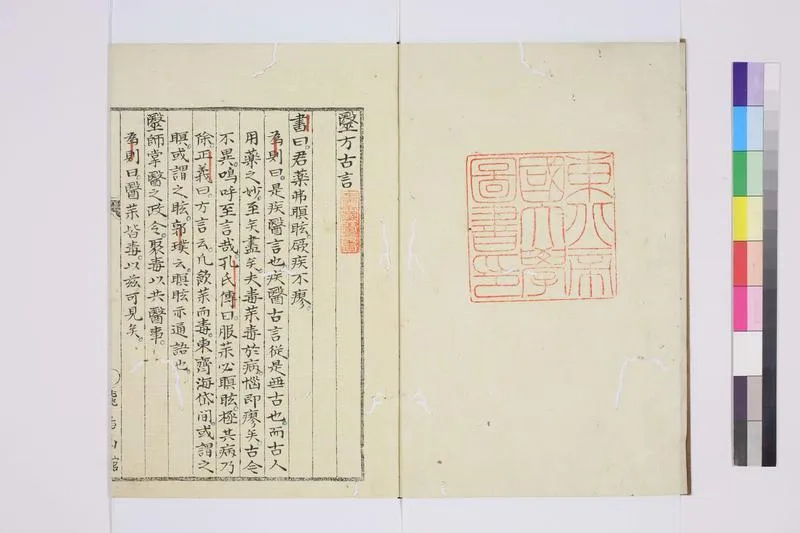 東北帝
國大學
圖書印
毉方古言
書曰。若藥弗瞑眩。厥疾不瘳。
為則曰。是疾醫言也。疾醫古言從是無古也。而古人
用藥之妙。至矣盡矣。夫毒藥毒於病。惱即瘳矣。古今
不異。嗚呼至言哉。孔氏傳曰。服藥必瞑眩。極其病乃
除。正義曰。方言云。凡飲藥而毒。東齊海岱間。或謂之
瞑。或謂之眩。郭璞云。瞑眩亦通語也。
毉師掌醫之政令。聚毒以共醫事。
為則曰。醫藥皆毒以兹可見矣。